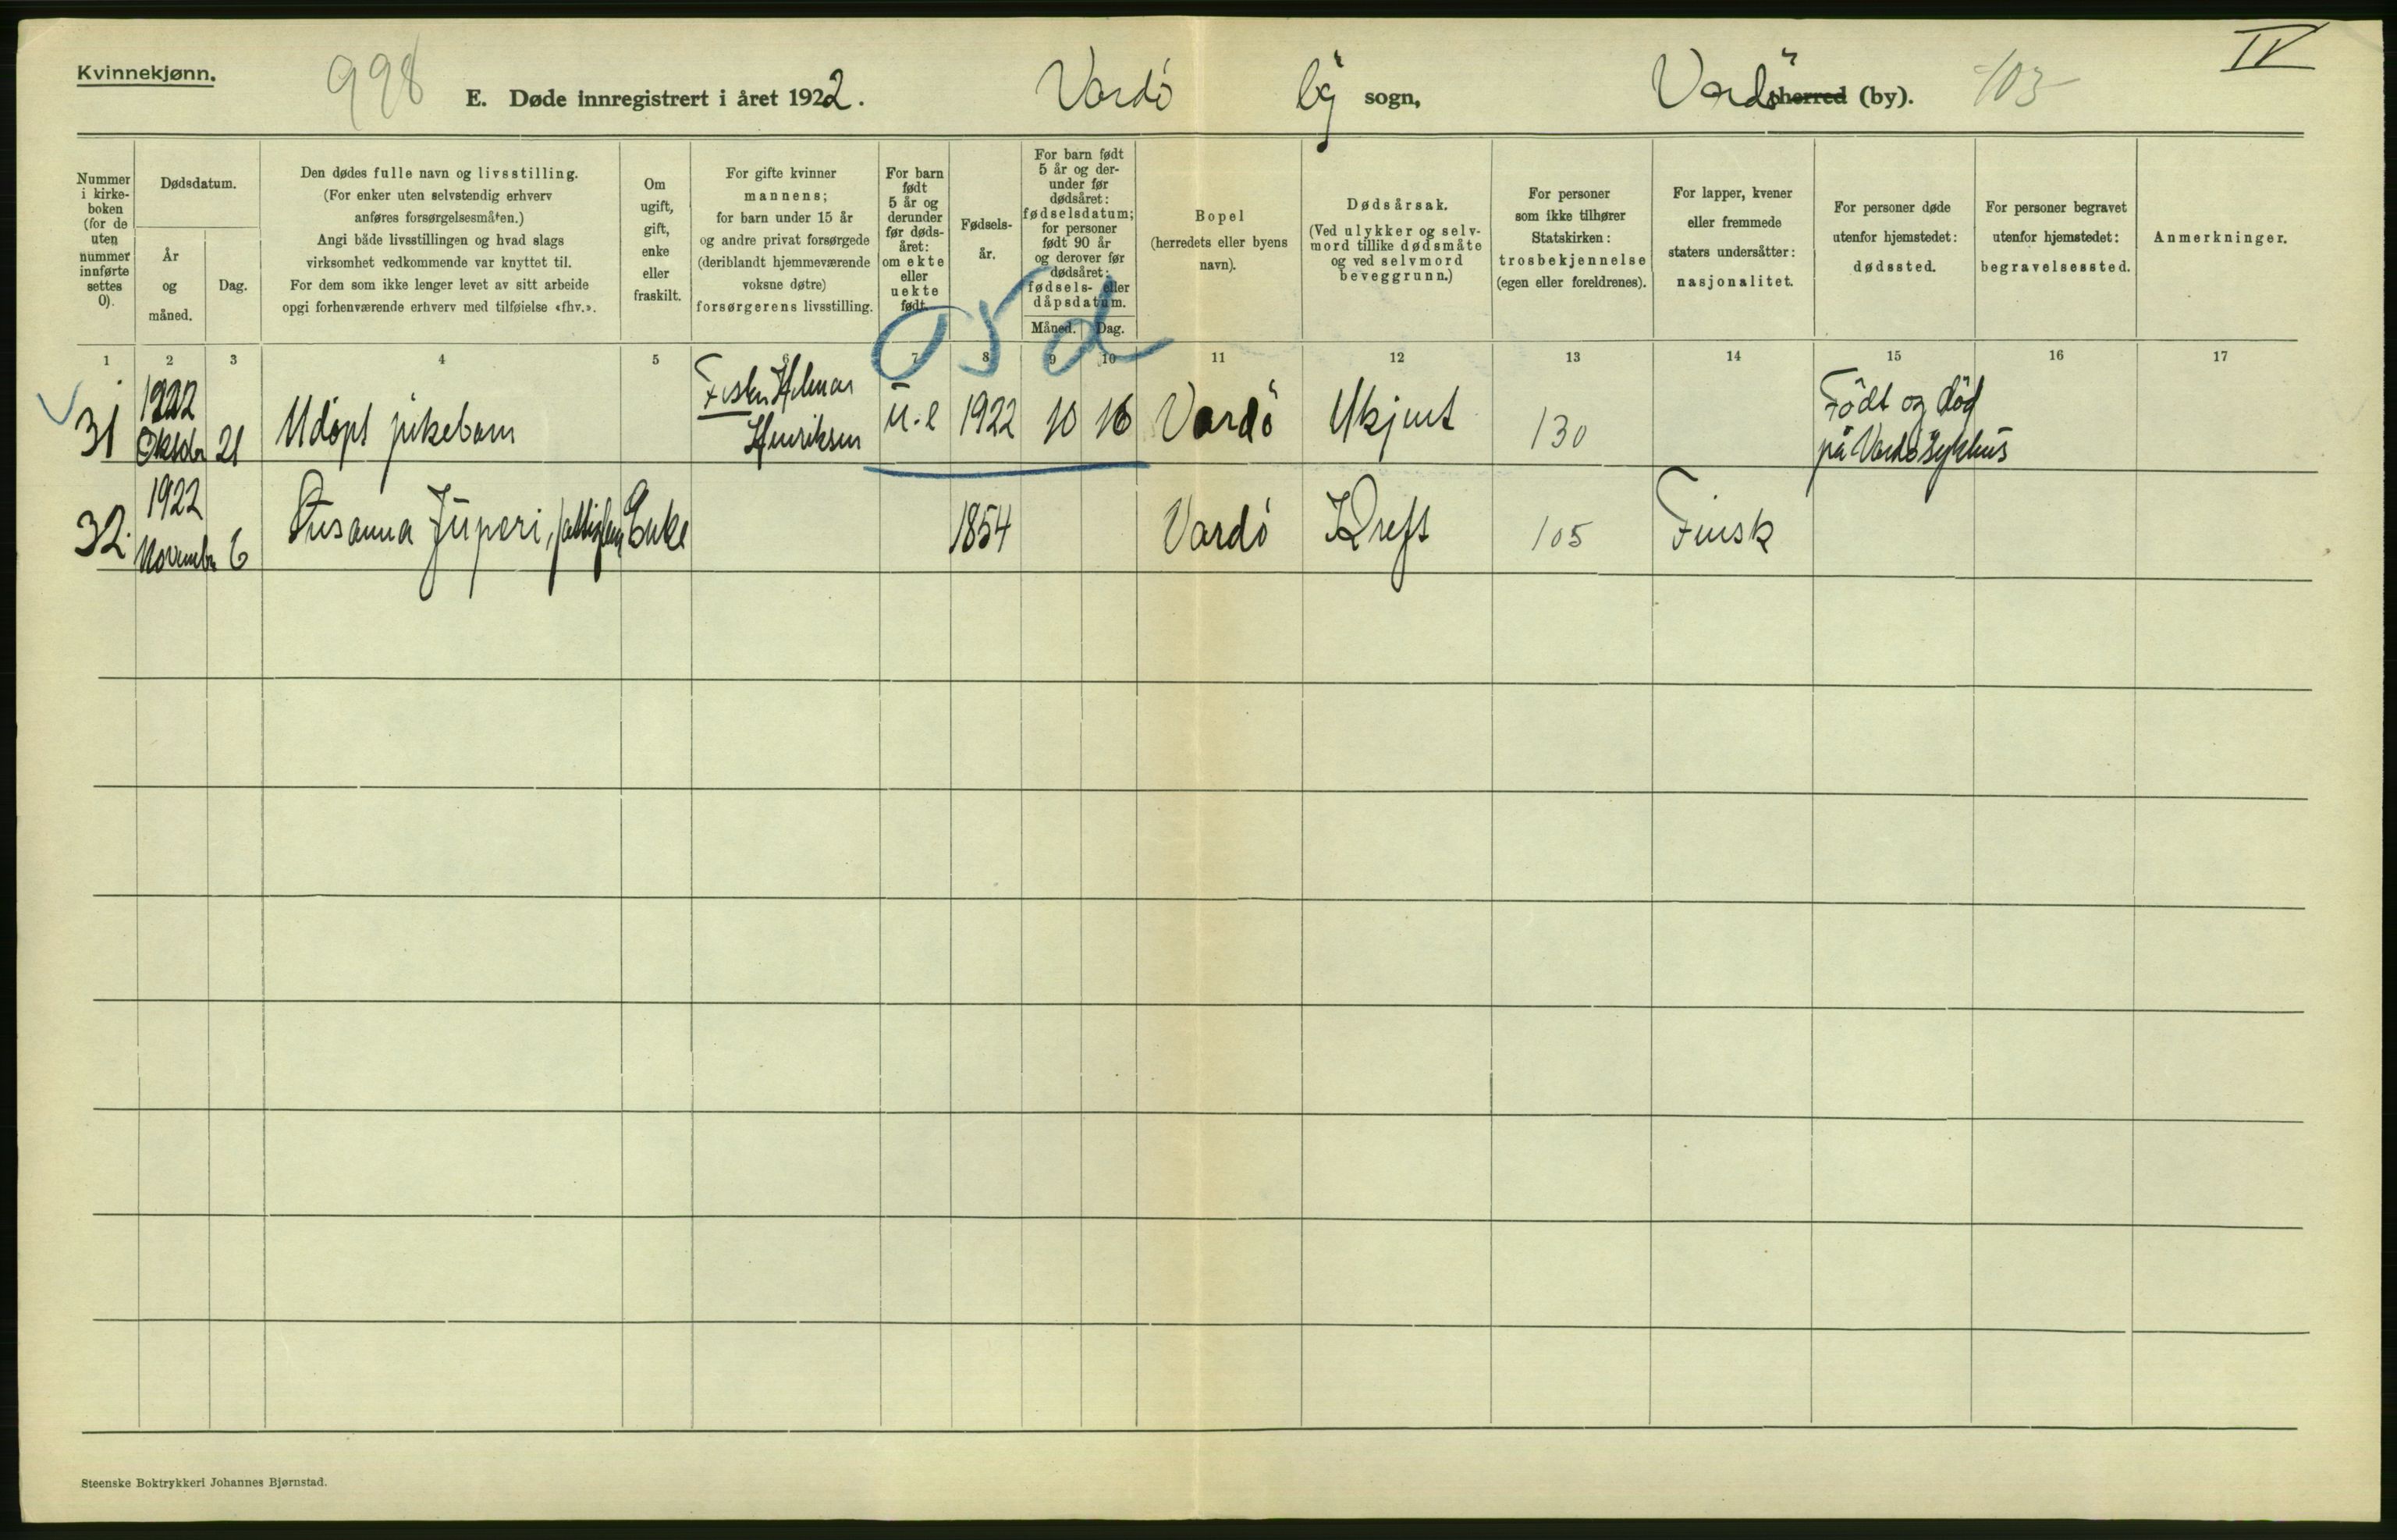 Kvinnekjønn.
998
E. Døde innregistrert i året 1922.
Vardö by sogn,
Vardö herred (by).
103
IV
Nummer i kirke-boken (for de uten nummer innførte settes 0).
Dødsdatum.
År og måned.
Dag.
Den dødes fulle navn og livsstilling.
(For enker uten selvstendig erhverv
anføres forsørgelsesmåten.)
Angi både livsstillingen og hvad slags
virksomhet vedkommende var knyttet til.
For dem som ikke lenger levet av sitt arbeide
opgi forhenværende erhverv med tilføielse «fhv.».
Om ugift, gift, enke eller fraskilt.
For gifte kvinner
mannens;
for barn under 15 år
og andre privat forsørgede
(deriblandt hjemmeværende
voksne døtre)
forsørgerens livsstilling.
For barn født 5 år og derunder før døds-året: om ekte eller uekte født.
Fødsels-år.
For barn født 5 år og der-under før dødsåret: fødselsdatum; for personer født 90 år og derover før dødsåret: fødsels- eller dåpsdatum.
Måned. Dag.
Bopel
(herredets eller byens
navn).
Dødsårsak.
(Ved ulykker og selv-
mord tillike dødsmåte
og ved selvmord
beveggrunn.)
For personer
som ikke tilhører
Statskirken:
trosbekjennelse
(egen eller foreldrenes).
For lapper, kvener
eller fremmede
staters undersåtter:
nasjonalitet.
For personer døde
utenfor hjemstedet:
dødssted.
For personer begravet
utenfor hjemstedet:
begravelsessted.
Anmerkninger.
1 2 3 4 5 6 7 8 9 10 11 12 13 14 15 16 17
5 d
31 1922 Oktobr 21 Udöpt pikebarn Fisker Hilmar Henriksen u.e 1922 10 16 Vardö Ukjent 130 Födt og död på Vardö Sykhus
32. 1922 November 6 Susanna Juperi, Enke 1854 Vardö Kreft 105 Finsk
Steenske Boktrykkeri Johannes Bjørnstad.